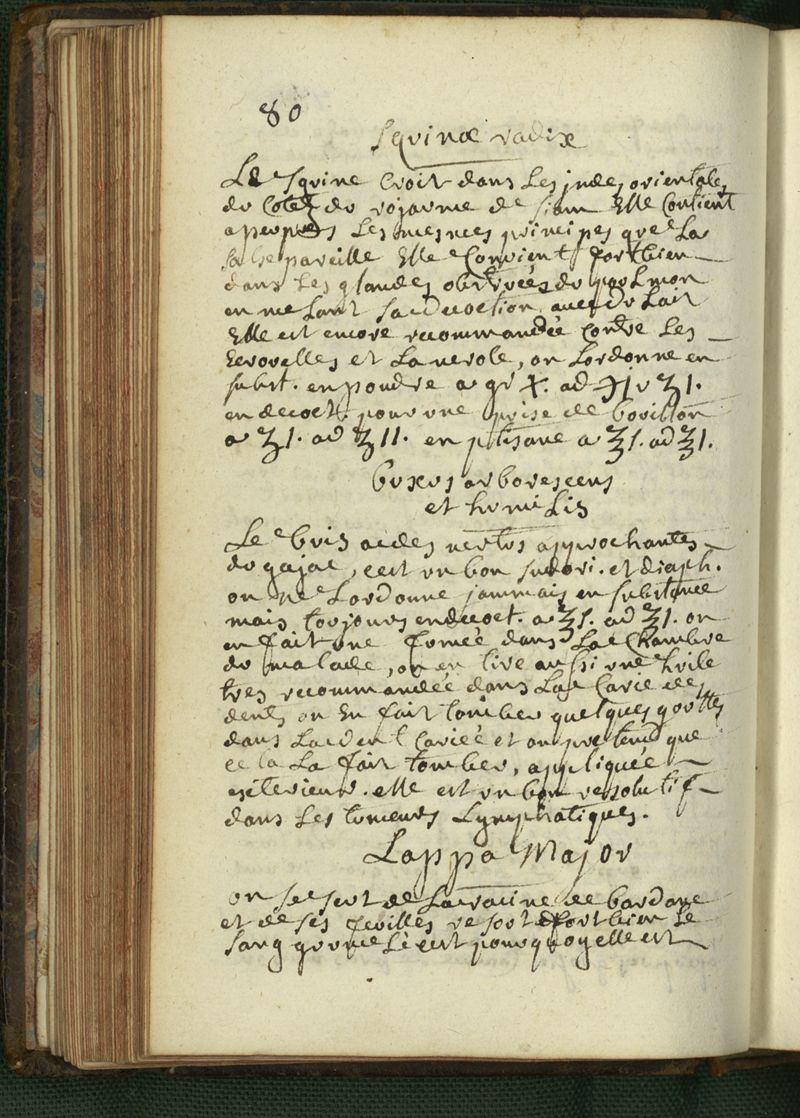 80
Squinæ radix
Le squine croit dans Les jndes orientales
du Coté du rojaume de siam Elle Contient
apeuprés Les mesmes principes que La
salsepareille Elle Convient fort bien
dans Les glandes obstruées du poulmon
en meslant sa decoction avec du Lait
Elle est encore recommandée Contre Les
Ecrouelles et La verole, on Lordonne en
subst. en poudre a gr X. ad ℈I v ʒI.
en decoct. pour une prise de bouillon
a ʒI. ad ʒII. en ptisane a ℥s. ad ℥I.
buxus arborescens
et humilis
Le buis a des vertus approchantes
du gajac, cest un bon sudori. et diaph.
on ne Lordonne jammais en substance
mais toujours en decoct. a ℥s. ad ℥I. on
en fait une fumée dans La Chambre
du malade, on en tire aussi une huile
tres recommandée dans La Carie des
dents on En fait tomber quelques gouttes
dans La dent Cariée et on pretend que
ce la La fait tomber, appliquée
exterieur. elle est un bon resolutif
dans Les tumeurs Lymphatiques.
Lappa Major
on se sert de La racine de bardane
et de ses feuilles resout fort bien Le
sang grumelé cest pourquoy elle est